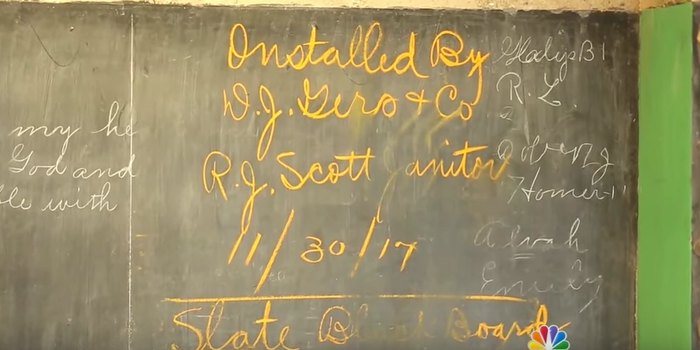 my he
God and
le with
Installed By
D.J. Gero + Co
R.J. Scott Janitor
11/30/17
Slate Black Board
Gladys B
R. L.
Homer
Alvah
Emily